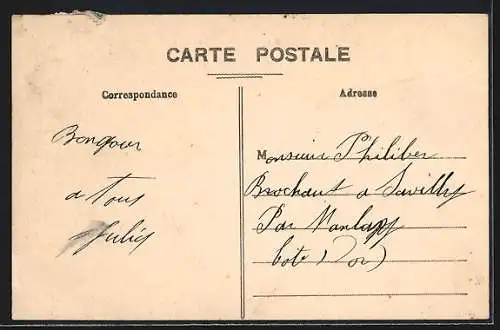 CARTE POSTALE
Correspondance
Adresse
Bonjour
a Tous
Julie
Monsieur Philiber
Brochant a Savilly
Par Manlay
Cote D'or)